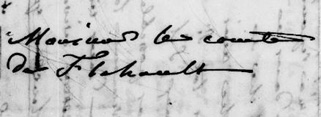 Monsieur le comte
de Flahault